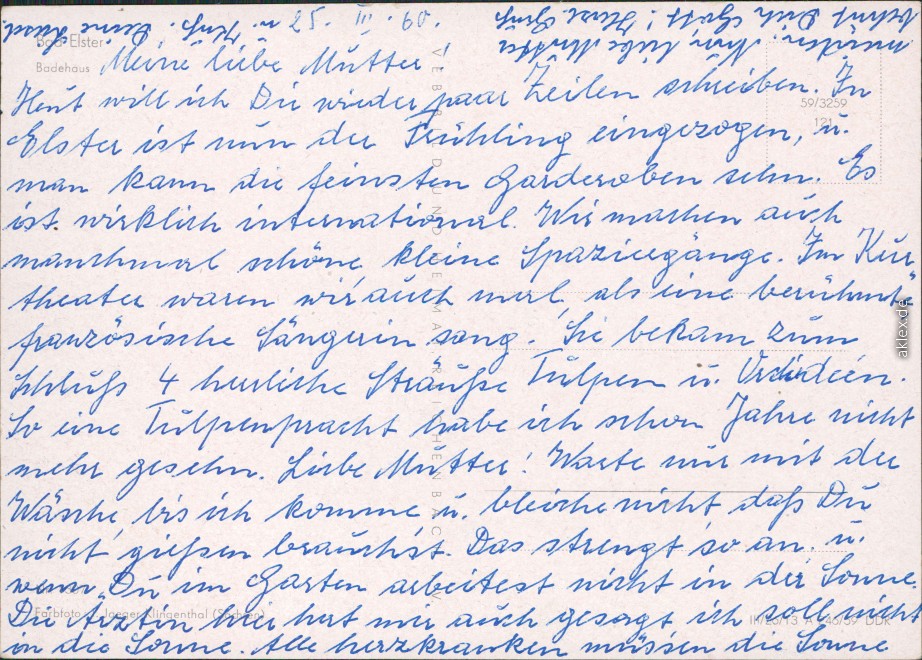 Bad Elster
Badehaus
59/3259
121
Meine liebe Mutter!
Heut will ich Dir wieder paar Zeilen schreiben. In
Elster ist nun der Frühling eingezogen, u.
man kann die feinsten Garderoben sehn. Es
ist wirklich international. Wir machen auch
manchmal schöne kleine Spaziergänge. Im Kur-
theater waren wir auch mal als eine berühmte
französische Sängerin sang. Sie bekam zum
Schluß 4 herrliche Sträuße Tulpen u.
So eine Tulpenpracht habe ich schon Jahre nicht
mehr gesehn. Liebe Mutter! Warte nur mit der
Wäsche bis ich komme u. bleiche nicht daß Du
nicht gießen brauchst. Das strengt so an. u.
wenn Du im Garten arbeitest nicht in der Sonne
Die Ärztin hier hat mir auch gesagt ich soll nicht
in die Sonne. Alle herzkranken müssen die Sonne
meiden. Nun liebe Mutter
behüt Dich Gott! Herzl. Gruß
u. Kuß. Deine
25. III. 60.
Farbfoto: Jaeger, Klingenthal (Sachsen)
III/26/13 A 46/59 DDR
aklex.de